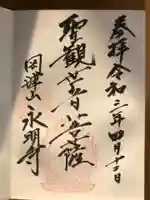 奉拝 令和三年四月十日
聖觀世音菩薩
岡津山 永明寺